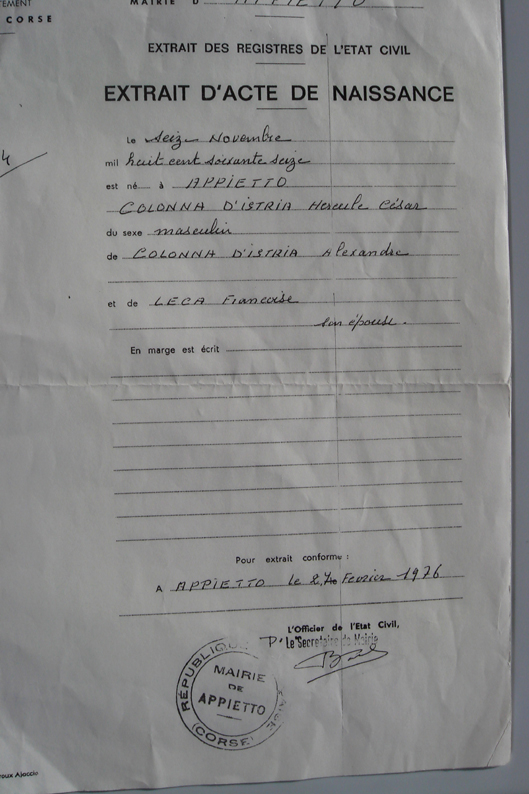 CORSE
MAIRIE D' APPIETTO
EXTRAIT DES REGISTRES DE L'ETAT CIVIL
EXTRAIT D'ACTE DE NAISSANCE
Le seize Novembre
4
mil huit cent soixante seize
est né à APPIETTO
COLONNA D'ISTRIA Hercule César
du sexe masculin
de COLONNA D'ISTRIA Alexandre
et de LECA Francoise
son épouse.
En marge est écrit
Pour extrait conforme :
A APPIETTO le Fevrier 1976
L'Officier de l'Etat Civil,
Pr Le Secrétaire de Mairie
RÉPUBLIQUE
MAIRIE
DE
APPIETTO
(CORSE)
Ajaccio